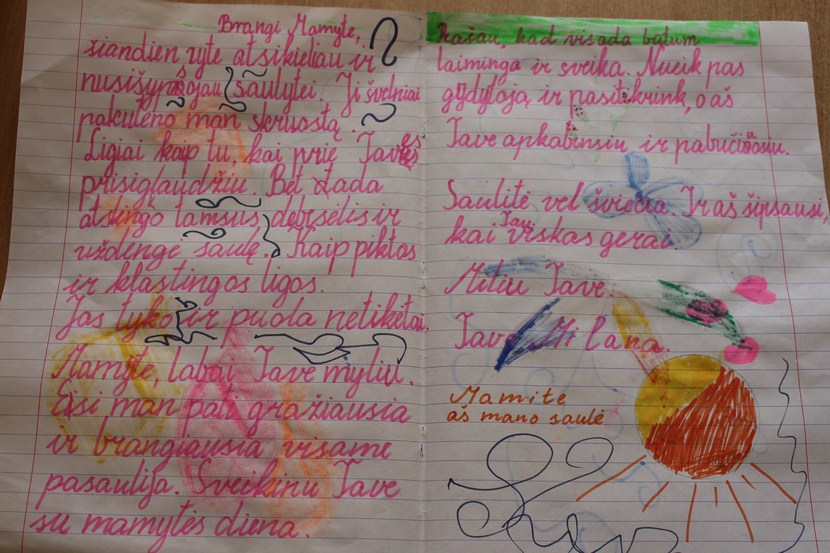 Brangi Mamyte,
šiandien ryte atsikėliau ir
nusišypsojau saulytei. Ji švelniai
pakuteno man skruostą.
Ligiai kaip tu, kai prie Tavęs
prisiglaudžiu. Bet tada
atslingo tamsus debesėlis ir
uždengė saulę. Kaip piktos
ir klastingos ligos.
Jos tyko ir puola netikėtai.
Mamyte, labai Tave myliu.
Esi man pati gražiausia
ir brangiausia visame
pasaulija. Sveikinu Tave
su mamytės diena.
Prašau, kad visada būtum
laiminga ir sveika. Nueik pas
gydytoją ir pasitikrink, o aš
Tave apkabinsiu ir pabučiuosiu.
Saulitė vėl šviečia. Ir aš šipsausi,
kai Tau viskas gerai.
Miliu Tave.
Tavo Milana.
Mamite
aš mano saulė